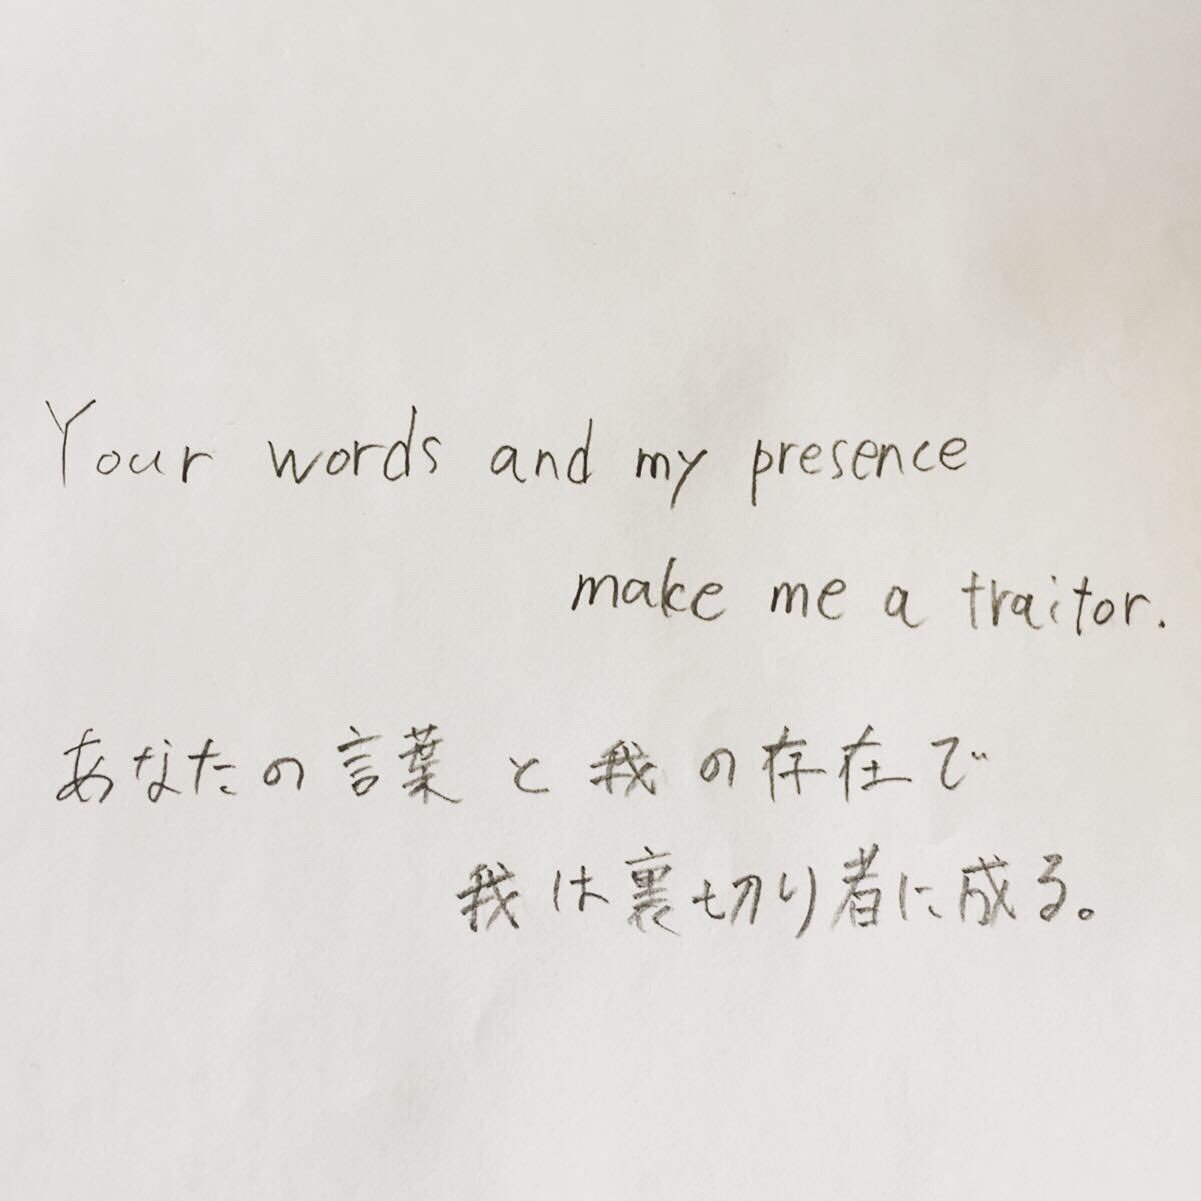 Your words and my presence
make me a traitor.
あなたの言葉と我の存在で
我は裏切り者に成る。